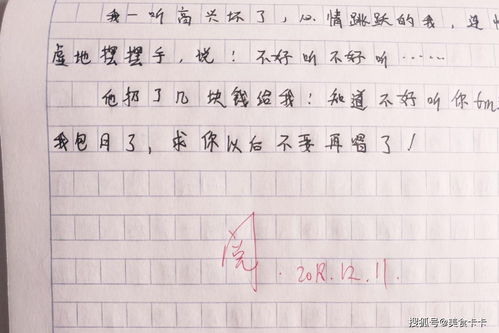 我一听高兴坏了，心情跳跃的我，连忙
虚地摆摆手，说：不好听不好听……
他扔了几块钱给我：知道不好听你tm
我包月了，求你以后不要再唱了！
阅.2018.12.11.
搜狐号@美食卡卡